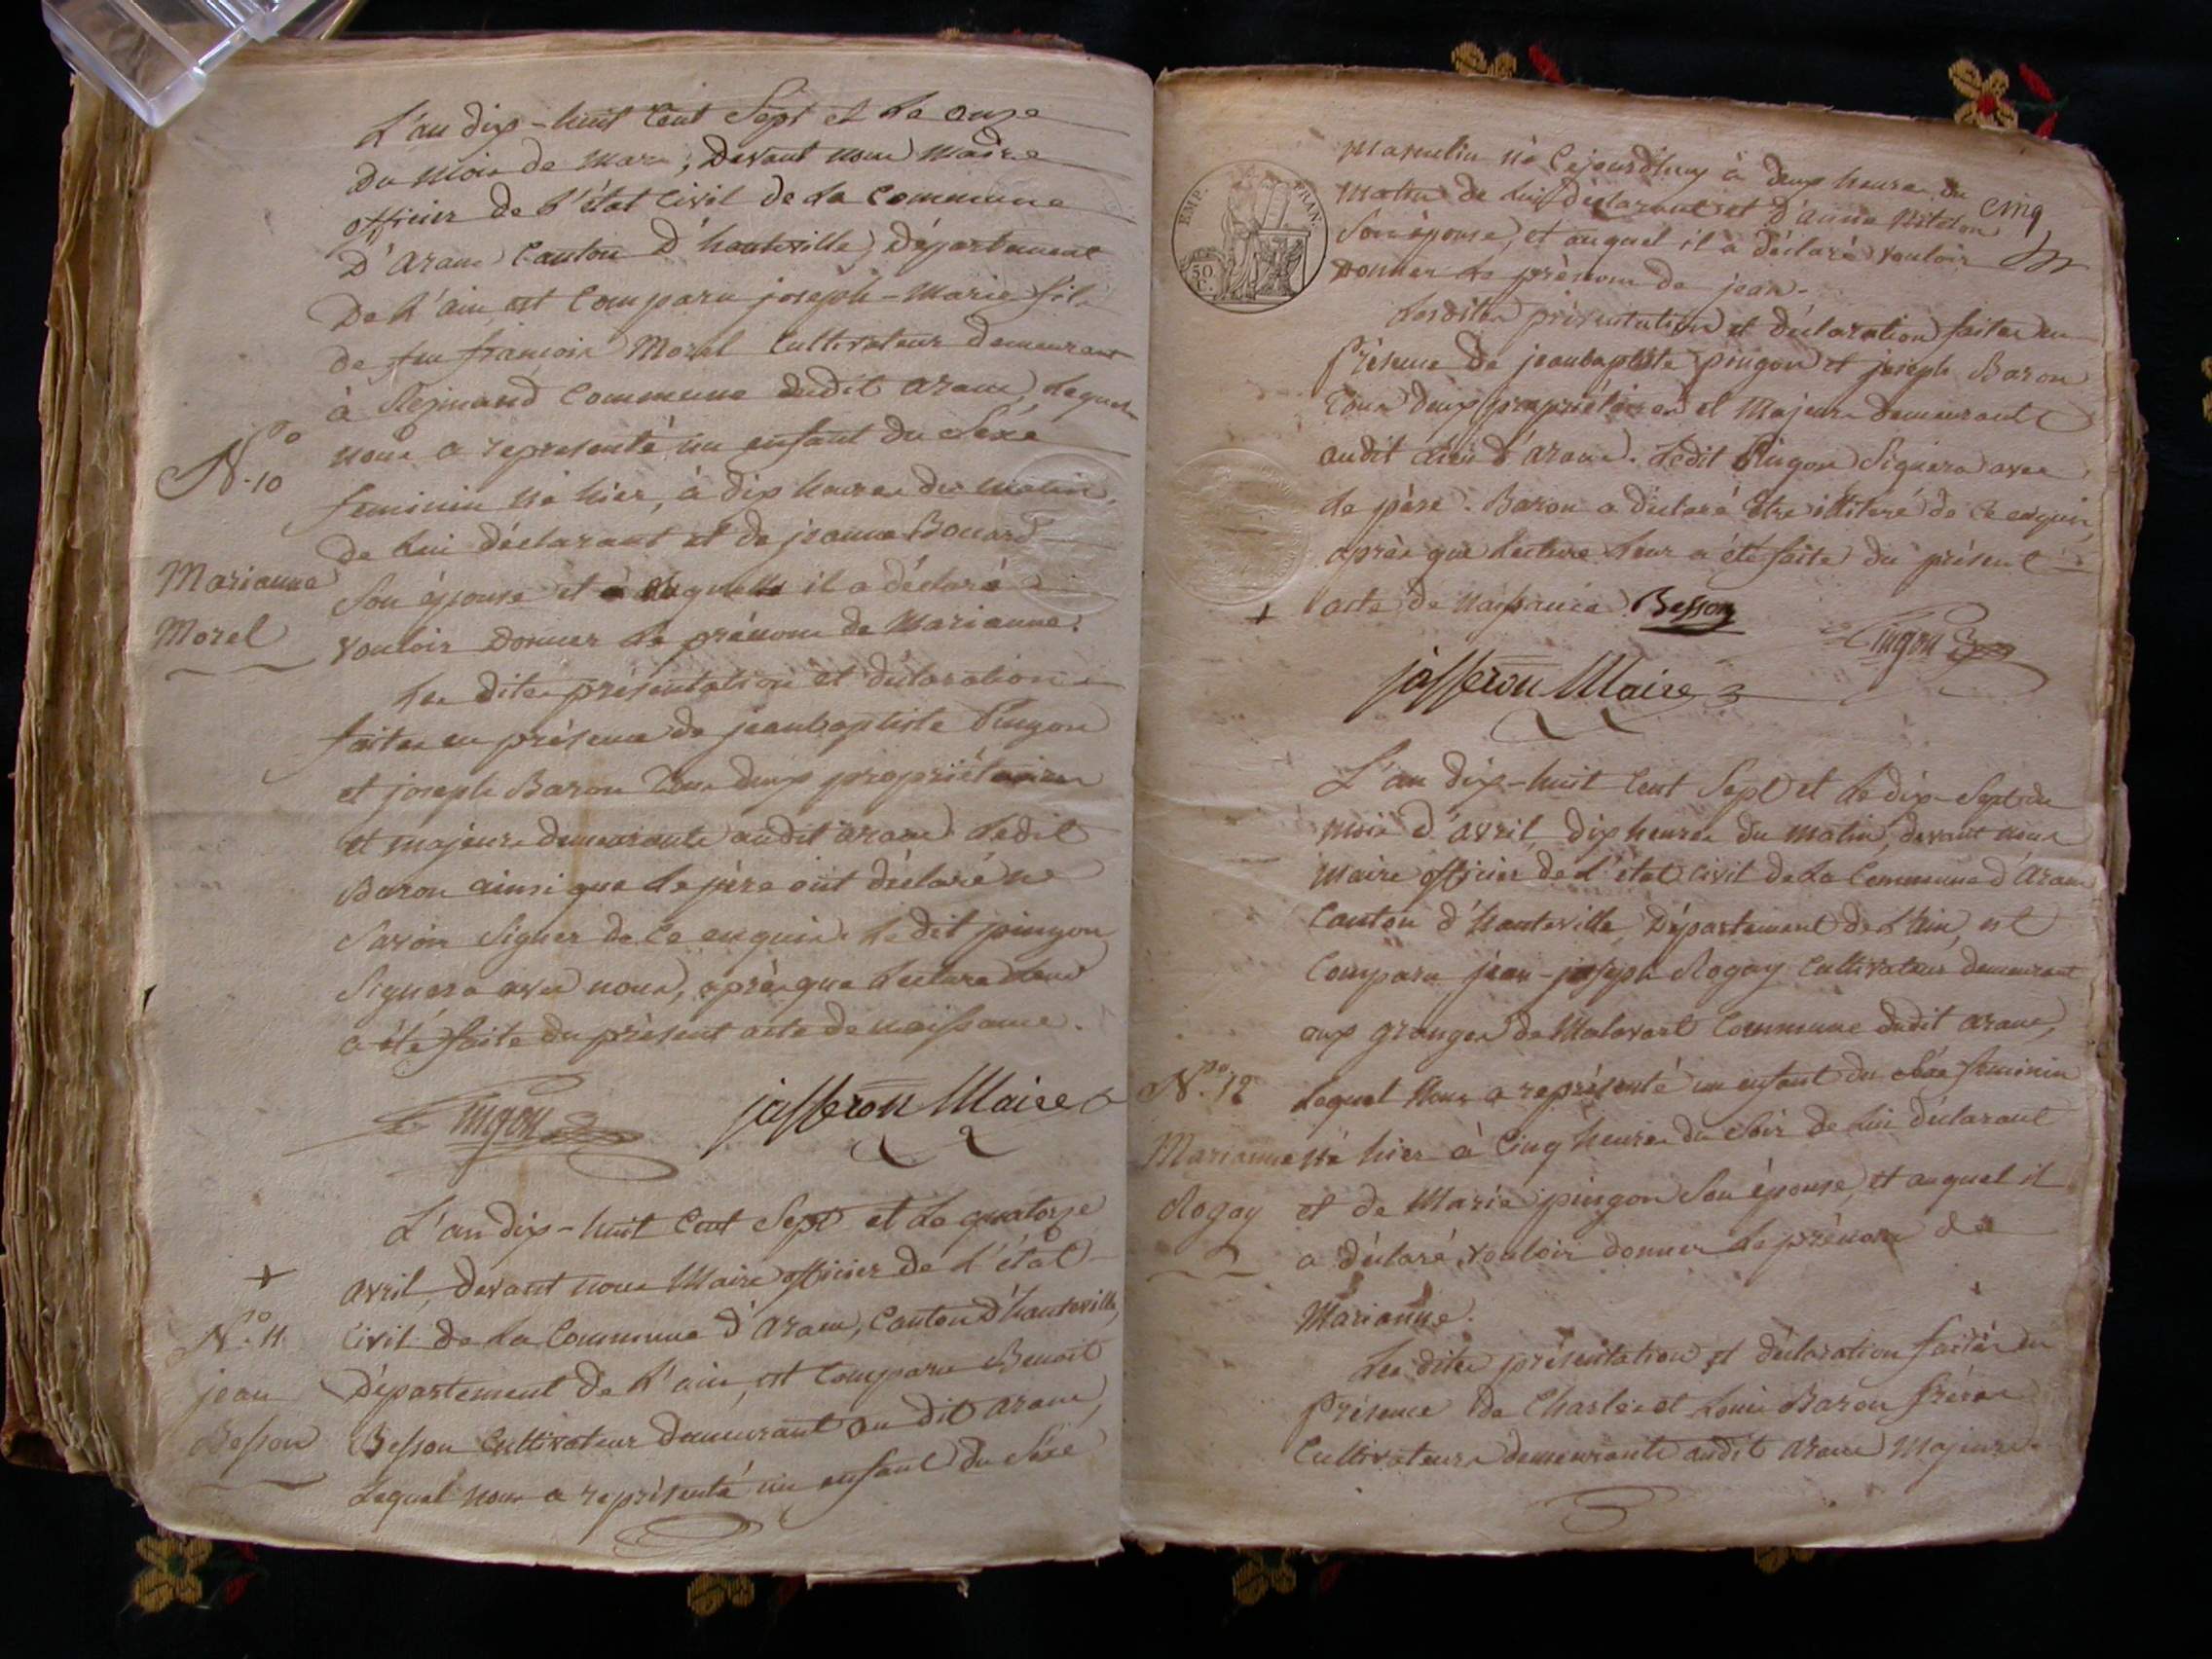 L'an dix-huit Cent Sept et le onze
Du mois de mars, Devant nous maire
officier de l'état Civil de la Commune
D'arane Canton D'hauteville, Département
De l'ain, est Comparu joseph-Marie fils
de feu françois Morel Cultivateur Demeurant
à Commune dudit arane, lequel
N.ro 10
nous a representé un enfant du Sexe
feminin né hier, à dix heures du matin,
de lui déclarant et de jeanne Bouard
Marianne
Morel
Son épouse et à laquelle il a déclaré
vouloir Donner le prénom de Marianne.
Les dites présentation et déclaration
faites en présence de jeanbaptiste Pingon
et joseph Baron Tous deux propriétaires
et majeurs demeurants audit arane ledit
Baron ainsi que le père ont déclaré ne
Savoir Signer de Ce enquis. Ledit pingon
Signera avec nous, après que lecture leur
a été faite du présent acte de naissance.
Pingon jasseron Maire
L'an dix-huit Cent Sept et le quatorze
+
avril, devant nous Maire officier de l'état
N.ro 11
jean
Besson
Civil de la Commune d'arane, Canton d'hauteville,
département de l'ain, est Comparu Benoit
Besson Cultivateur demeurant au dit arane,
lequel nous a représenté un enfant du Sexe
EMP. FRAN.
50 C.
cinq
masculin né Cejourdhuy à deux heures du
matin de lui déclarant et d'anne
Son épouse, et auquel il a déclaré vouloir
Donner le prénom de jean.
Lesdites présentation et déclaration faites en
Présence de jeanbaptiste pingon et joseph Baron
Tous deux propriétaires et Majeurs demeurants
audit lieu d'arane. Ledit Pingon Signera avec
le père. Baron a déclaré être illitéré de Ce enquis,
après que lecture leur a été faite du présent
+ acte de naissance. Besson
Pingon
jasseron Maire
L'an dix-huit Cent Sept et le dix-Sept du
mois d'avril, dix heures du matin, devant nous
Maire officier de l'état Civil de la Commune d'arane
Canton d'hauteville, Département de l'ain, est
Comparu jean-joseph Rogay Cultivateur demeurant
aux granges de Malavart Commune dudit arane,
N.ro 12
Marianne
Rogay
lequel Nous a représenté un enfant du Sexe feminin
né hier à Cinq heures du Soir de lui déclarant
et de Marie pingon Son épouse, et auquel il
a déclaré vouloir donner le prénom de
Marianne.
Les dites présentation et déclaration faites en
Présence de Charles et Louis Baron frères
Cultivateurs demeurants audit arane Majeurs